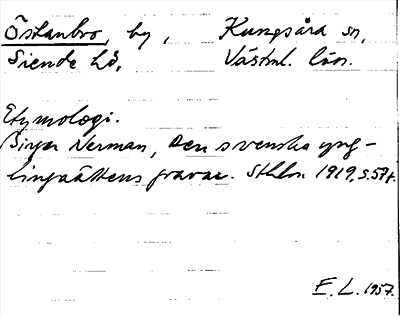 Östanbro, by, Kungsåra sn,
Siende hd, Västml. län.
Etymologi.
Birger Nerman, Den svenska yng-
lingaättens gravar. Sthlm. 1919, s. 57f.
E. L. 1957.